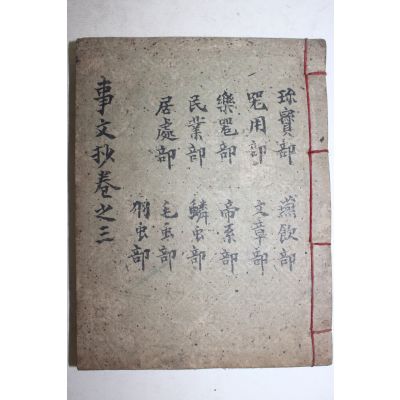 珎寶部
器用部
樂器部
民業部
居處部
燕飮部
文章部
帝系部
鱗虫部
毛虫部
羽虫部
事文抄卷之三